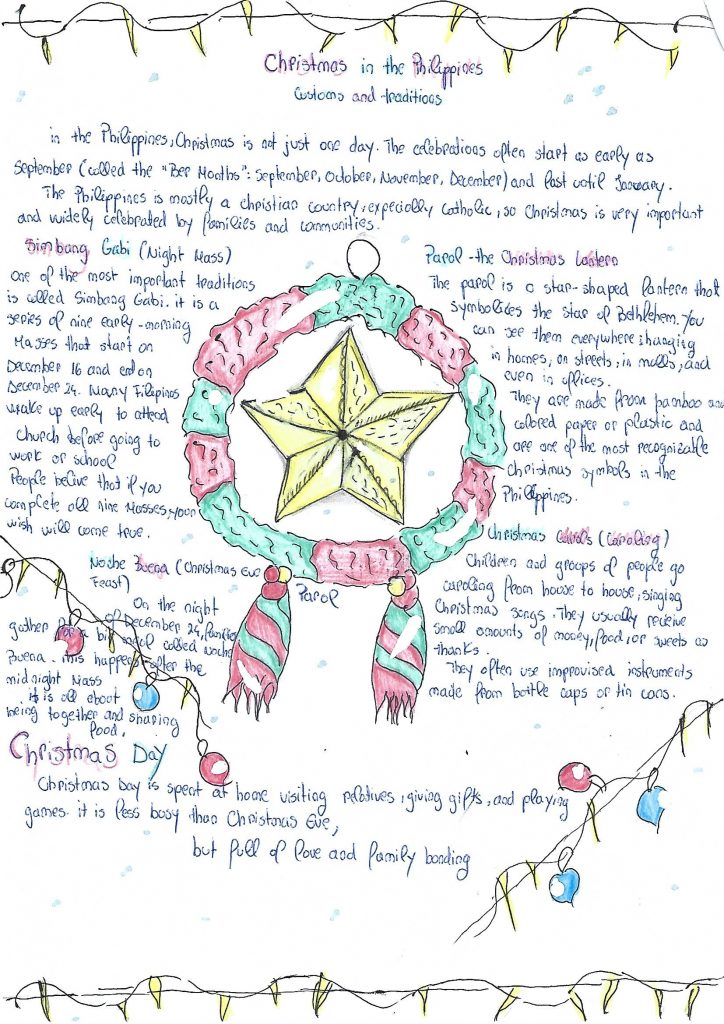 Christmas in the Philippines
Customs and traditions
in the Philippines, Christmas is not just one day. The celebrations often start as early as
September (called the "Ber Months": September, October, November, December) and last until January.
The Philippines is mostly a christian country, expecially Catholic, so Christmas is very important
and widely celebrated by families and communities.
Simbang Gabi (Night Mass)
one of the most important traditions
is called Simbang Gabi. it is a
series of nine early-morning
Masses that start on
December 16 and end on
December 24. Many Filipinos
wake up early to attend
church before going to
work or school
People belive that if you
complete all nine Masses, your
wish will come true.
Parol - the Christmas Lantern
The parol is a star-shaped lantern that
symbolizes the star of Bethlehem. You
can see them everywhere: hanging
in homes, on streets, in malls, and
even in offices.
They are made from bamboo and
colored paper or plastic and
are one of the most recognizable
Christmas symbols in the
Philippines.
Noche Buena (Christmas Eve
Feast)
On the night
of December 24, families
gather for a big meal called Noche
Buena. This happens after the
midnight Mass
it is all about
being together and sharing
food.
Parol
Christmas Carols (Caroling)
Children and groups of people go
caroling from house to house, singing
Christmas songs. They usually receive
small amounts of money, food, or sweets as
thanks.
They often use improvised instruments
made from bottle caps or tin cans.
Christmas Day
Christmas Day is spent at home visiting relatives, giving gifts, and playing
games. it is less busy than Christmas Eve,
but full of love and family bonding